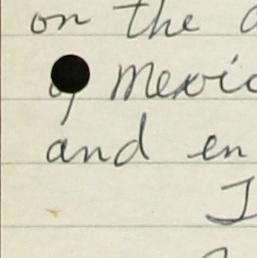 on the
of Mexic
and en